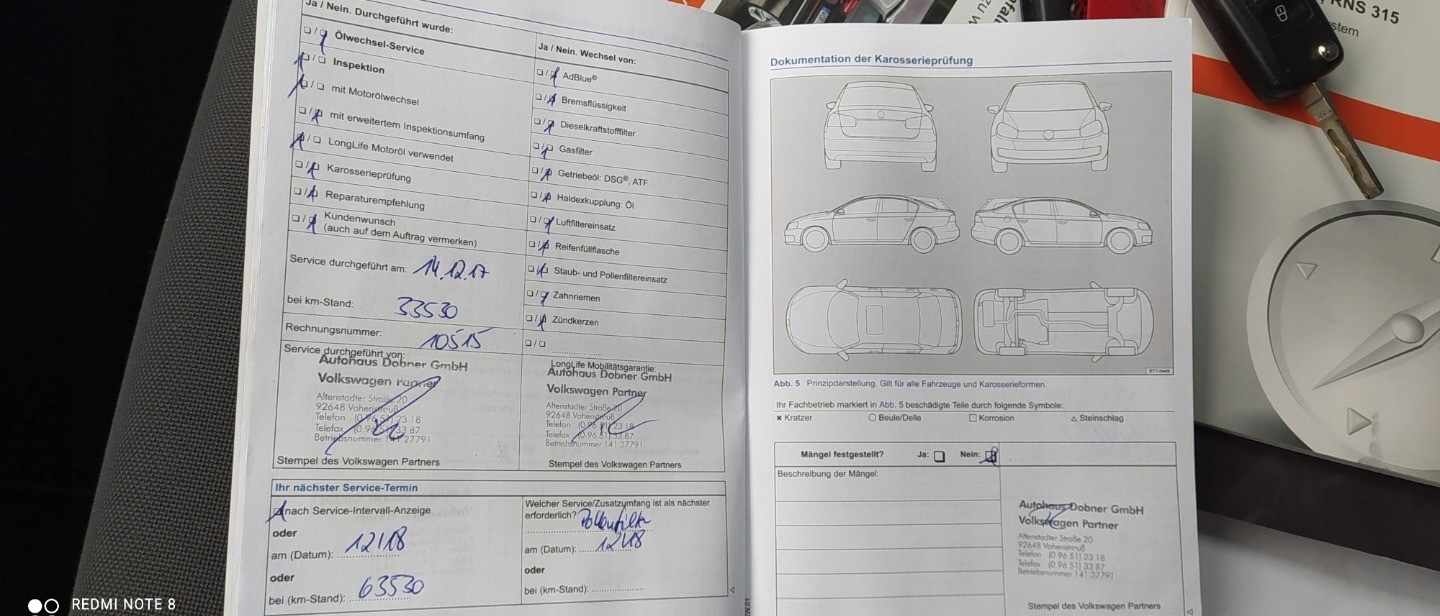 Ja / Nein. Durchgeführt wurde:
Ölwechsel-Service
Inspektion
mit Motorölwechsel
mit erweitertem Inspektionsumfang
LongLife Motoröl verwendet
Karosserieprüfung
Reparaturempfehlung
Kundenwunsch
(auch auf dem Auftrag vermerken)
Service durchgeführt am: 14.12.17
bei km-Stand: 33530
Rechnungsnummer: 10515
Service durchgeführt von:
Autohaus Dobner GmbH
Volkswagen Partner
Altenstadter Straße 20
92648 Vohenstrauß
Telefon (0 96 51) 23 18
Telefax (0 96 51) 33 87
Betriebsnummer 141 27791
Stempel des Volkswagen Partners
Ja / Nein. Wechsel von:
AdBlue®
Bremsflüssigkeit
Dieselkraftstofffilter
Gasfilter
Getriebeöl: DSG®, ATF
Haldexkupplung: Öl
Luftfiltereinsatz
Reifenfüllflasche
Staub- und Pollenfiltereinsatz
Zahnriemen
Zündkerzen
LongLife Mobilitätsgarantie:
Autohaus Dobner GmbH
Volkswagen Partner
Altenstadter Straße 20
92648 Vohenstrauß
Telefon (0 96 51) 23 18
Telefax (0 96 51) 33 87
Betriebsnummer 141 27791
Stempel des Volkswagen Partners
Ihr nächster Service-Termin
nach Service-Intervall-Anzeige
oder
am (Datum): 12/18
oder
bei (km-Stand): 63530
Welcher Service/Zusatzumfang ist als nächster
erforderlich? Pollenfilter
am (Datum): 12/18
oder
bei (km-Stand):
Dokumentation der Karosserieprüfung
Abb. 5 Prinzipdarstellung. Gilt für alle Fahrzeuge und Karosserieformen.
Ihr Fachbetrieb markiert in Abb. 5 beschädigte Teile durch folgende Symbole:
× Kratzer ○ Beule/Delle □ Korrosion △ Steinschlag
Mängel festgestellt? Ja: Nein:
Beschreibung der Mängel:
Autohaus Dobner GmbH
Volkswagen Partner
Altenstadter Straße 20
92648 Vohenstrauß
Telefon (0 96 51) 23 18
Telefax (0 96 51) 33 87
Betriebsnummer 141 27791
Stempel des Volkswagen Partners
RNS 315
REDMI NOTE 8